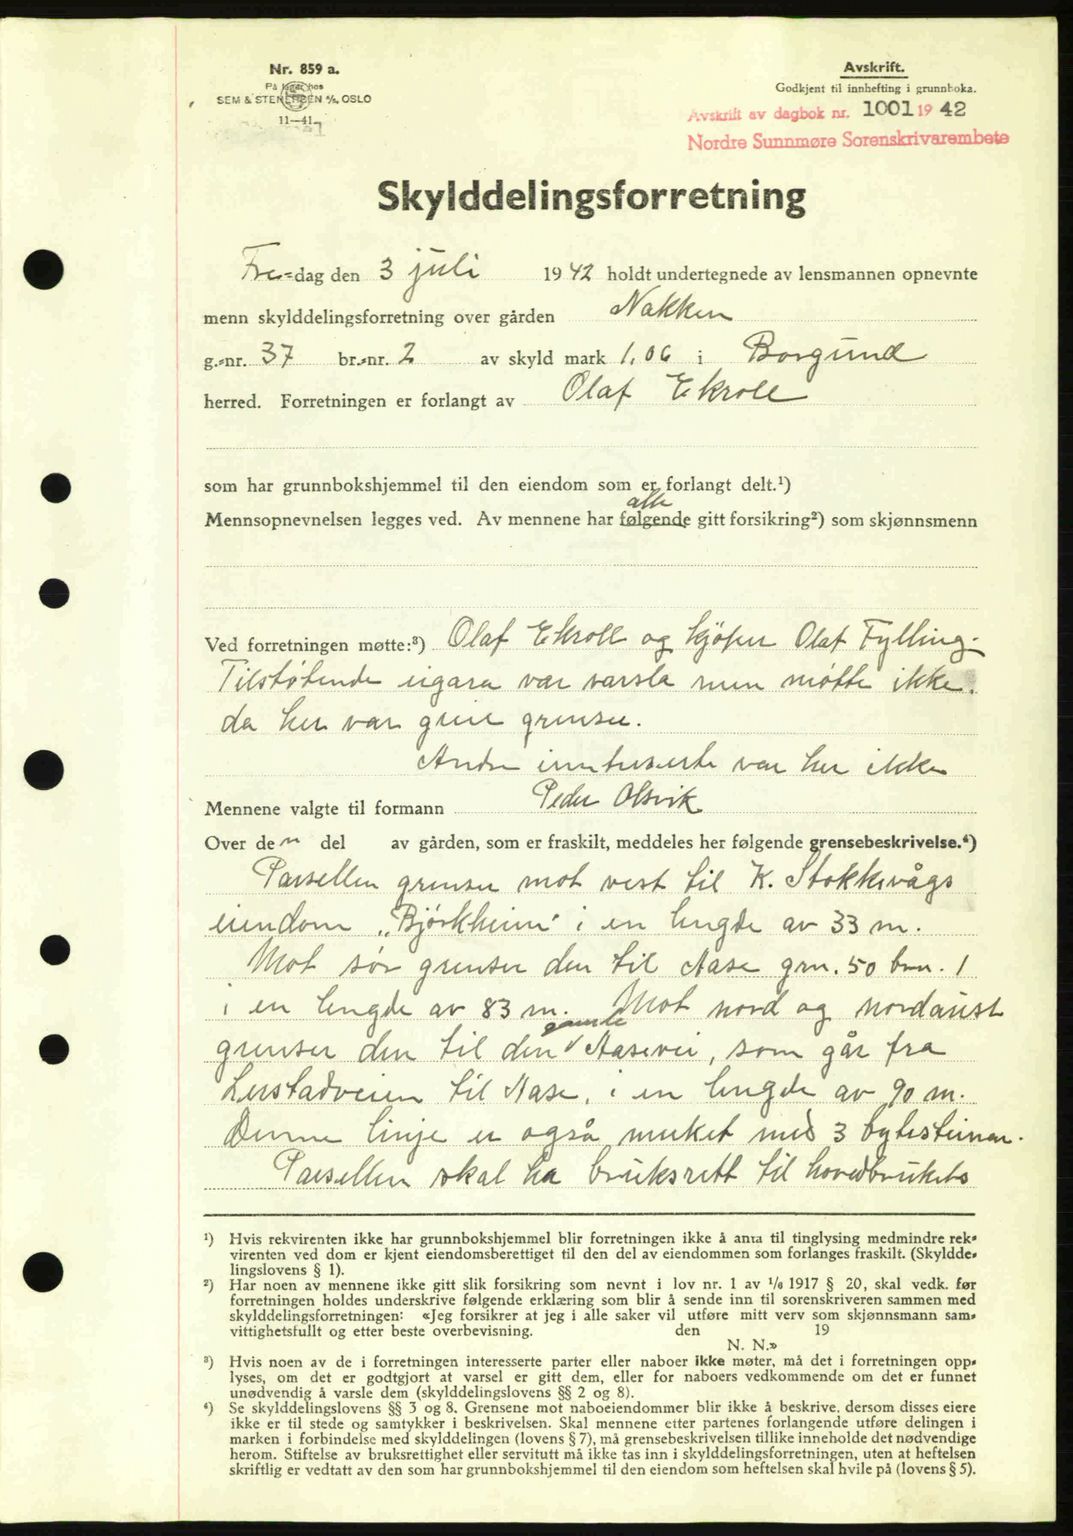 Nr. 859 a.
På lager hos
SEM & STENERSEN A/S, OSLO
11—41
Avskrift.
Godkjent til innhefting i grunnboka.
Avskrift av dagbok nr. 1001 1942
Nordre Sunnmøre Sorenskrivarembete
Skylddelingsforretning
Fre-dag den 3 juli 1942 holdt undertegnede av lensmannen opnevnte
menn skylddelingsforretning over gården Nakken
g.-nr. 37 br.-nr. 2 av skyld mark 1,06 i Borgund
herred. Forretningen er forlangt av Olaf Ekroll
som har grunnbokshjemmel til den eiendom som er forlangt delt.¹)
alle
Mennsopnevnelsen legges ved. Av mennene har følgende gitt forsikring²) som skjønnsmenn
Ved forretningen møtte:³) Olaf Ekroll og kjøper Olaf Fylling.
Tilstøtende eigara var varsla men møtte ikke.
da her var greie grenser.
Andre innteserte var her ikke
Mennene valgte til formann Peder Olsvik
Over den del av gården, som er fraskilt, meddeles her følgende grensebeskrivelse.⁴)
Parsellen grenser mot vest til K. Stokkevågs
eiendom „Bjørkheim" i en lengde av 33 m.
Mot sør grenser den til Aase grn. 50 brn. 1
i en lengde av 83 m. Mot nord og nordaust
gamle
grenser den til den Aasevei, som går fra
Lerstadveien til Aase, i en lengde av 90 m.
Denne linje er også merket med 3 bytesteiner.
Parsellen skal ha bruksrett til hovedbrukets
¹) Hvis rekvirenten ikke har grunnbokshjemmel blir forretningen ikke å anta til tinglysing medmindre rek-
virenten ved dom er kjent eiendomsberettiget til den del av eiendommen som forlanges fraskilt. (Skyldde-
lingslovens § 1).
²) Har noen av mennene ikke gitt slik forsikring som nevnt i lov nr. 1 av 1/6 1917 § 20, skal vedk. før
forretningen holdes underskrive følgende erklæring som blir å sende inn til sorenskriveren sammen med
skylddelingsforretningen: «Jeg forsikrer at jeg i alle saker vil utføre mitt verv som skjønnsmann sam-
vittighetsfullt og etter beste overbevisning. den 19
N. N.»
³) Hvis noen av de i forretningen interesserte parter eller naboer ikke møter, må det i forretningen opp-
lyses, om det er godtgjort at varsel er gitt dem, eller for naboers vedkommende om det er funnet
unødvendig å varsle dem (skylddelingslovens §§ 2 og 8).
⁴) Se skylddelingslovens §§ 3 og 8. Grensene mot naboeiendommer blir ikke å beskrive, dersom disses eiere
ikke er til stede og samtykker i beskrivelsen. Skal mennene etter partenes forlangende utføre delingen i
marken i forbindelse med skylddelingen (lovens § 7), må grensebeskrivelsen tillike inneholde det nødvendige
herom. Stiftelse av bruksrettighet eller servitutt må ikke tas inn i skylddelingsforretningen, uten at heftelsen
skriftlig er vedtatt av den som har grunnbokshjemmel til den eiendom som heftelsen skal hvile på (lovens § 5).